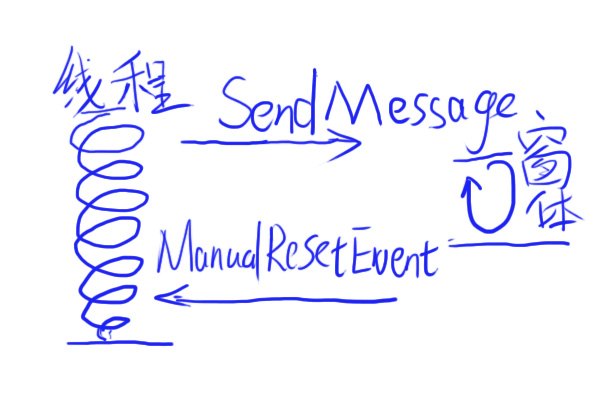 线程
SendMessage
窗体
ManualResetEvent